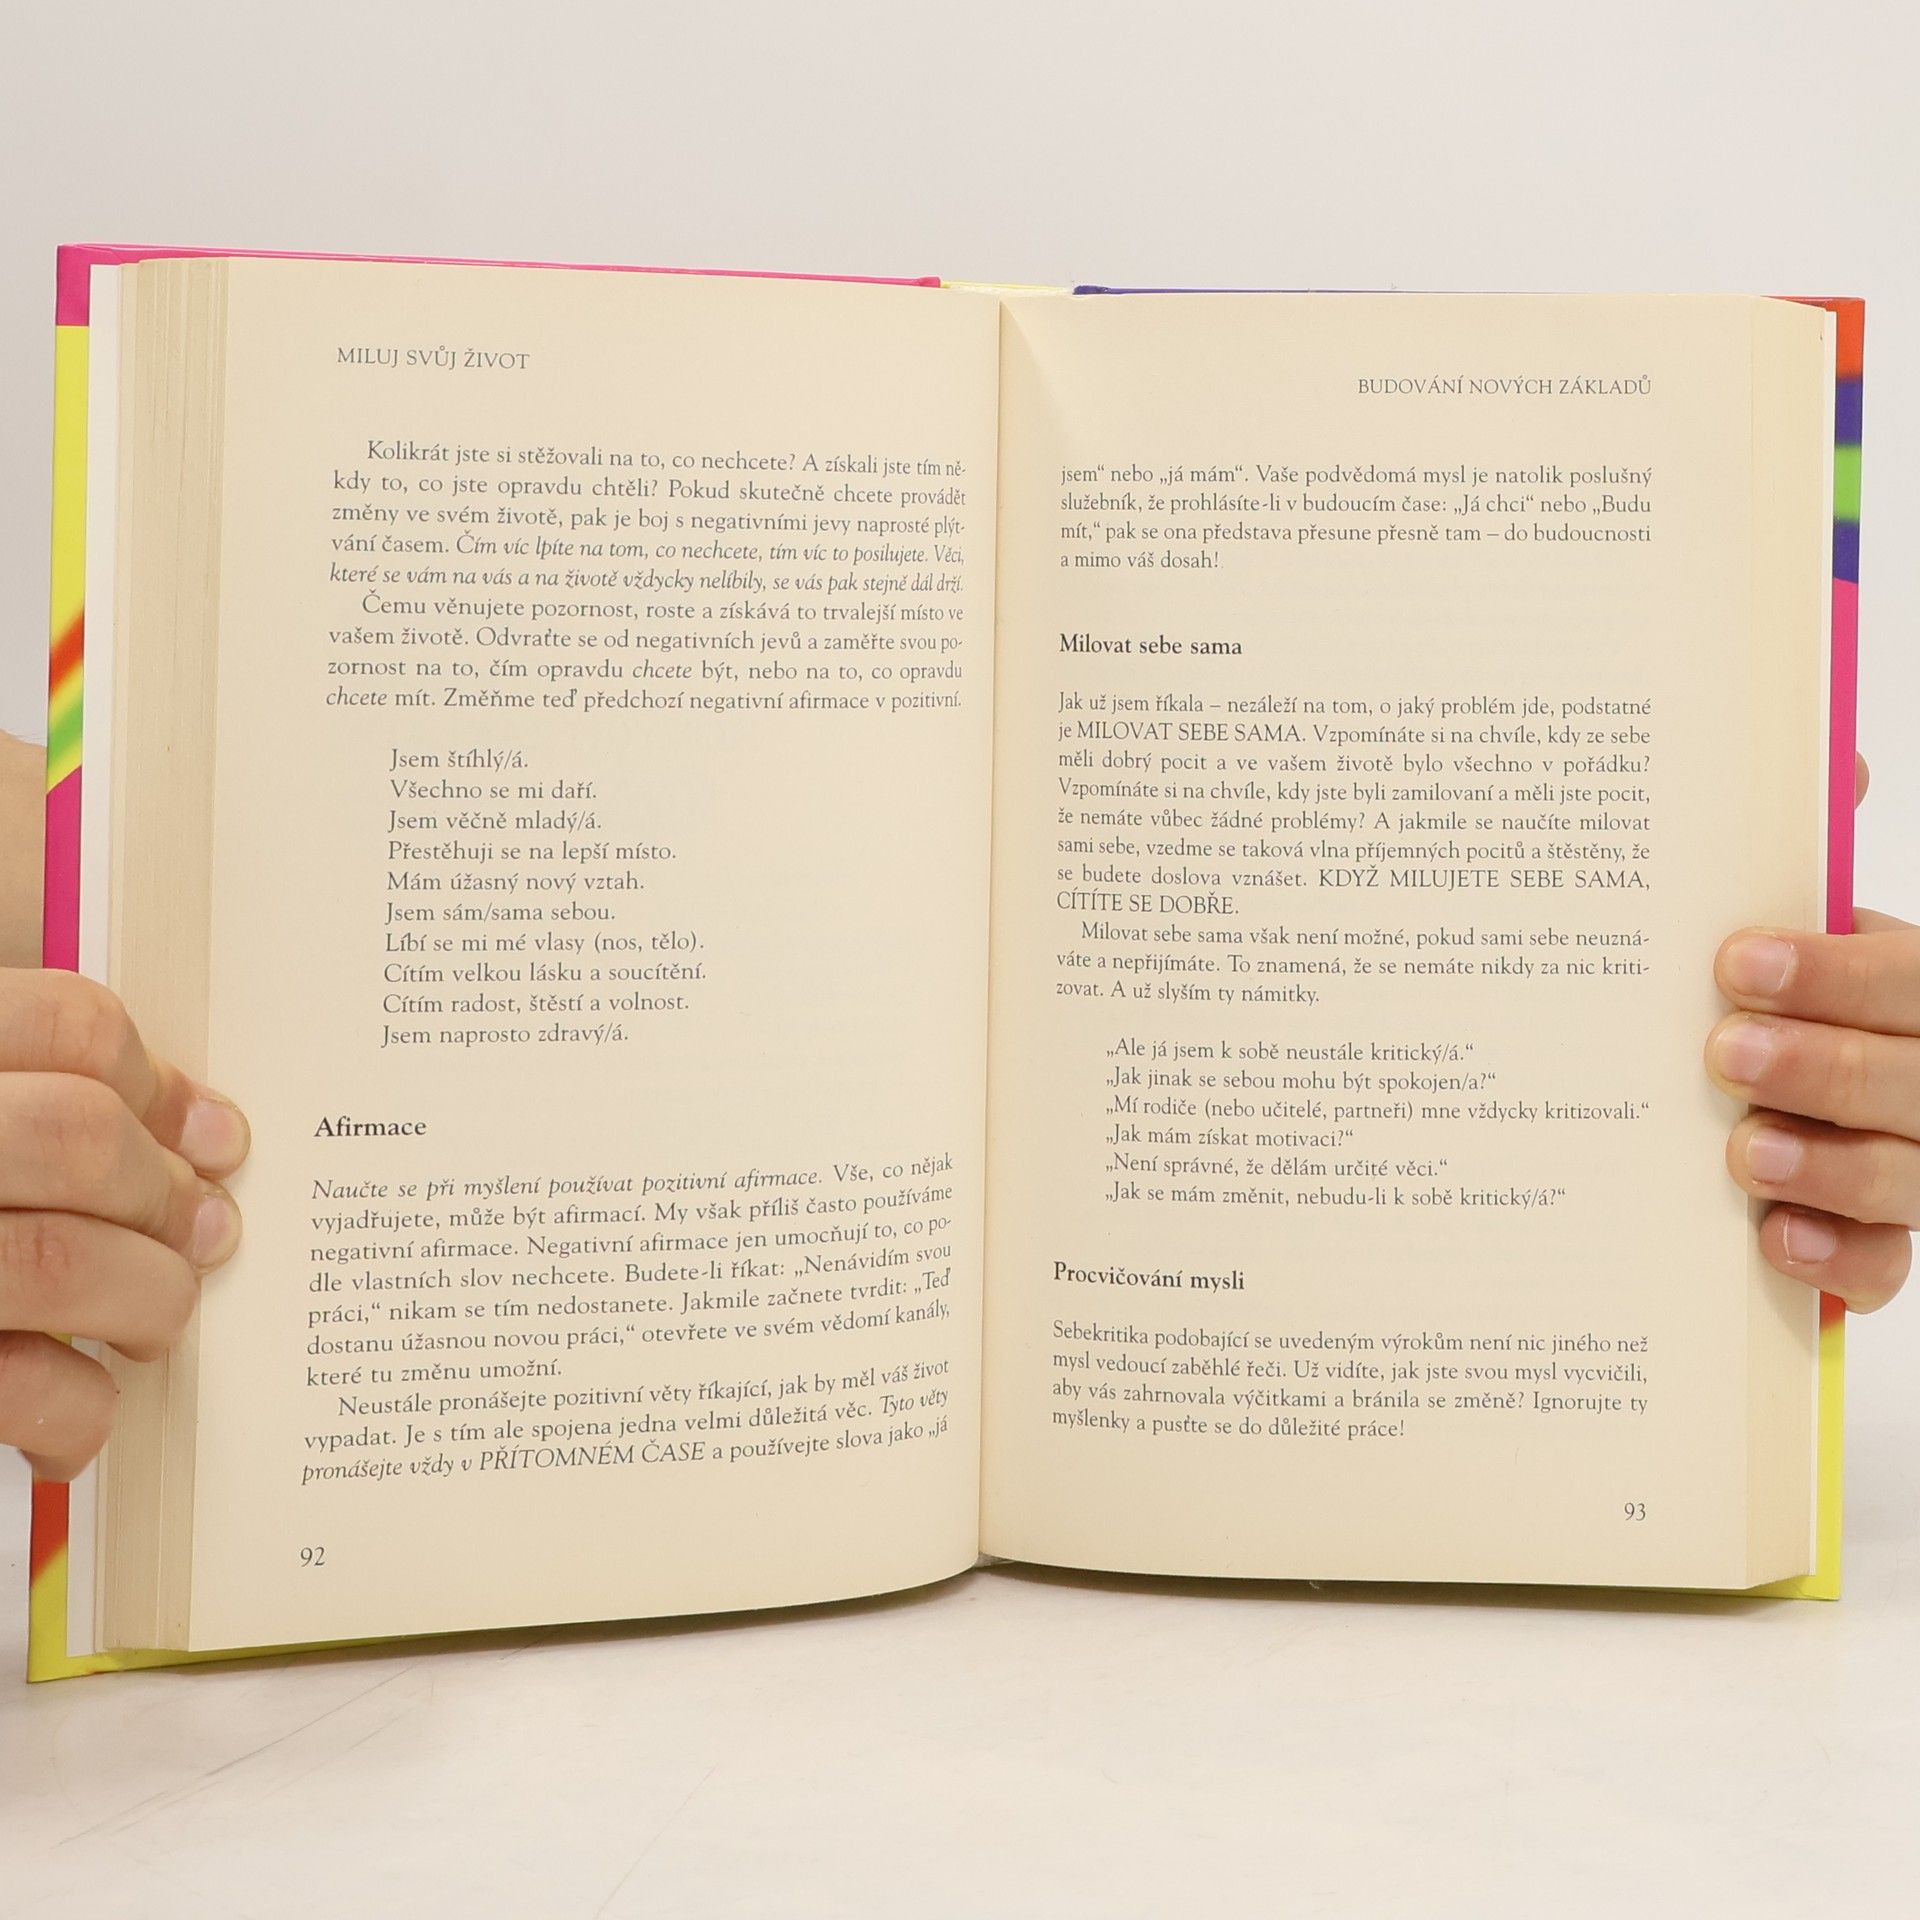 MILUJ SVŮJ ŽIVOT
Kolikrát jste si stěžovali na to, co nechcete? A získali jste tím ně-
kdy to, co jste opravdu chtěli? Pokud skutečně chcete provádět
změny ve svém životě, pak je boj s negativními jevy naprosté plýt-
vání časem. Čím víc lpíte na tom, co nechcete, tím víc to posilujete. Věci,
které se vám na vás a na životě vždycky nelíbily, se vás pak stejně dál drží.
Čemu věnujete pozornost, roste a získává to trvalejší místo ve
vašem životě. Odvraťte se od negativních jevů a zaměřte svou po-
zornost na to, čím opravdu chcete být, nebo na to, co opravdu
chcete mít. Změňme teď předchozí negativní afirmace v pozitivní.
Jsem štíhlý/á.
Všechno se mi daří.
Jsem věčně mladý/á.
Přestěhuji se na lepší místo.
Mám úžasný nový vztah.
Jsem sám/sama sebou.
Líbí se mi mé vlasy (nos, tělo).
Cítím velkou lásku a soucítění.
Cítím radost, štěstí a volnost.
Jsem naprosto zdravý/á.
Afirmace
Naučte se při myšlení používat pozitivní afirmace. Vše, co nějak
vyjadřujete, může být afirmací. My však příliš často používáme
negativní afirmace. Negativní afirmace jen umocňují to, co po-
dle vlastních slov nechcete. Budete-li říkat: „Nenávidím svou
práci,“ nikam se tím nedostanete. Jakmile začnete tvrdit: „Teď
dostanu úžasnou novou práci,“ otevřete ve svém vědomí kanály,
které tu změnu umožní.
Neustále pronášejte pozitivní věty říkající, jak by měl váš život
vypadat. Je s tím ale spojena jedna velmi důležitá věc. Tyto věty
pronášejte vždy v PŘÍTOMNÉM ČASE a používejte slova jako „já
92
BUDOVÁNÍ NOVÝCH ZÁKLADŮ
jsem“ nebo „já mám“. Vaše podvědomá mysl je natolik poslušný
služebník, že prohlásíte-li v budoucím čase: „Já chci“ nebo „Budu
mít,“ pak se ona představa přesune přesně tam – do budoucnosti
a mimo váš dosah!
Milovat sebe sama
Jak už jsem říkala – nezáleží na tom, o jaký problém jde, podstatné
je MILOVAT SEBE SAMA. Vzpomínáte si na chvíle, kdy ze sebe
měli dobrý pocit a ve vašem životě bylo všechno v pořádku?
Vzpomínáte si na chvíle, kdy jste byli zamilovaní a měli jste pocit,
že nemáte vůbec žádné problémy? A jakmile se naučíte milovat
sami sebe, vzedme se taková vlna příjemných pocitů a štěstěny, že
se budete doslova vznášet. KDYŽ MILUJETE SEBE SAMA,
CÍTÍTE SE DOBŘE.
Milovat sebe sama však není možné, pokud sami sebe neuzná-
váte a nepřijímáte. To znamená, že se nemáte nikdy za nic kriti-
zovat. A už slyším ty námitky.
„Ale já jsem k sobě neustále kritický/á.“
„Jak jinak se sebou mohu být spokojen/a?“
„Mí rodiče (nebo učitelé, partneři) mne vždycky kritizovali.“
„Jak mám získat motivaci?“
„Není správné, že dělám určité věci.“
„Jak se mám změnit, nebudu-li k sobě kritický/á?“
Procvičování mysli
Sebekritika podobající se uvedeným výrokům není nic jiného než
mysl vedoucí zaběhlé řeči. Už vidíte, jak jste svou mysl vycvičili,
aby vás zahrnovala výčitkami a bránila se změně? Ignorujte ty
myšlenky a pusťte se do důležité práce!
93